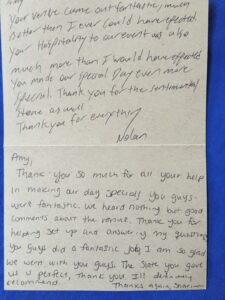 Amy,
Your venue came out fantastic, much
Better than I ever could have expected
Your Hospitality to our event was also
much more than I would have expected
You made our special Day even more
special. Thank you for the sentimental
stone as well
Thank you for everything
Nolan
Amy,
Thank you so much for all your help
in making our day special, you guys
were fantastic. We heard nothing but good
comments about the venue. Thank you for
helping set up and answering my questions
you guys did a fantastic job, I am so glad
we went with you guys. The stone you gave
us is perfect, thank you. I'll definitely
recommend.
Thanks again,